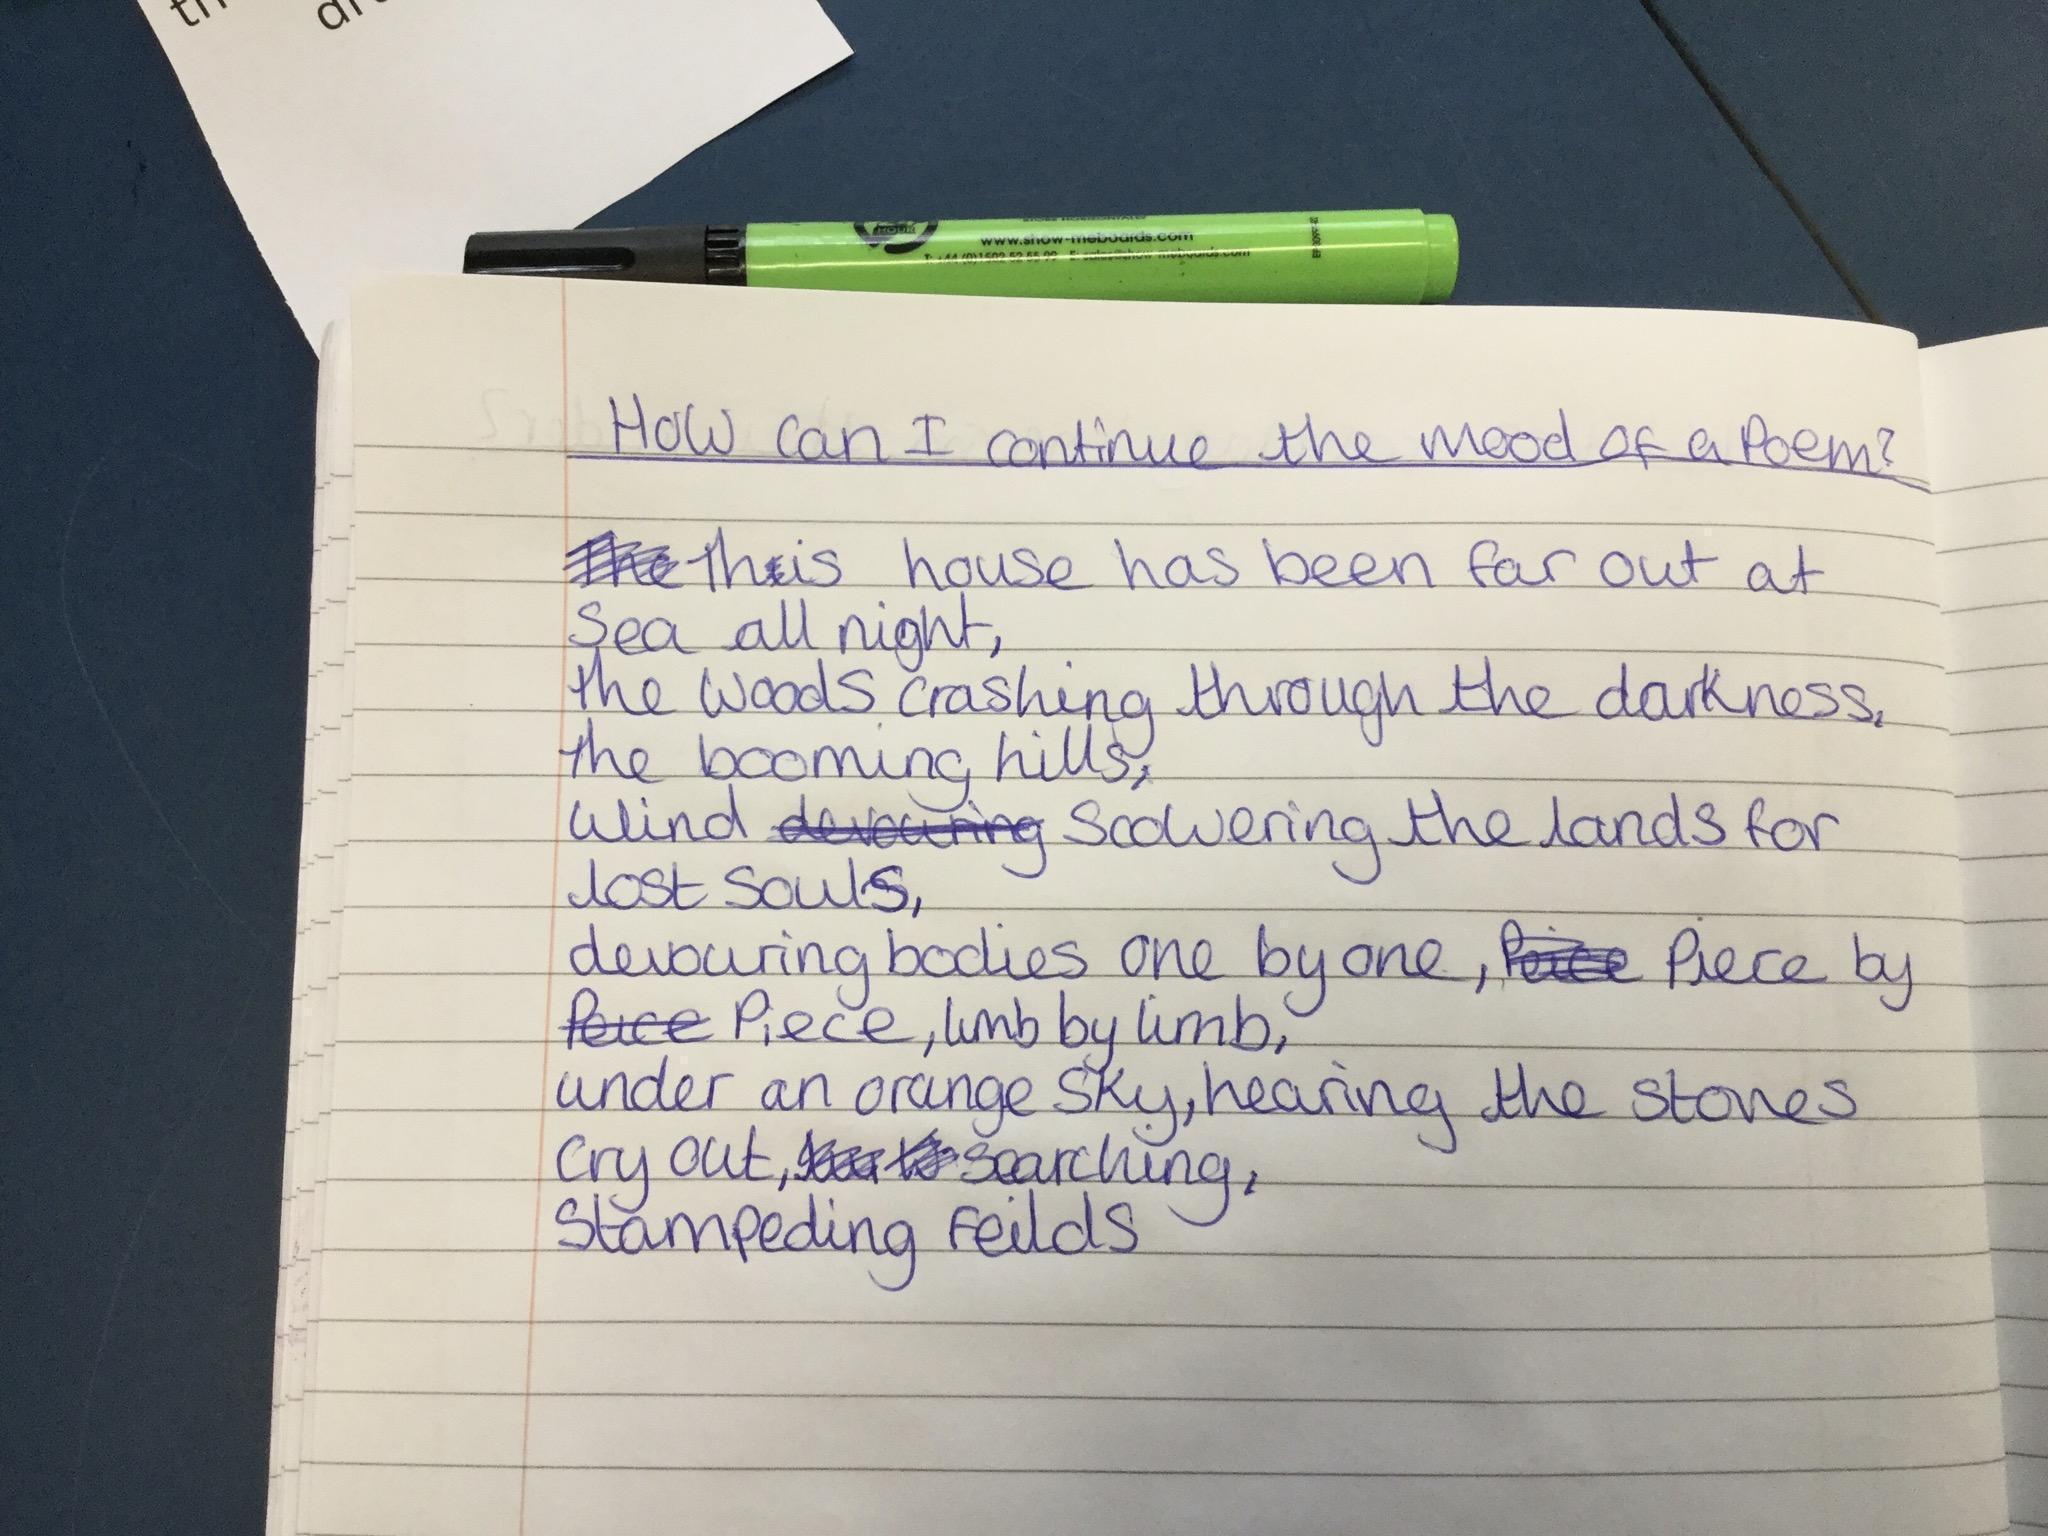 th
www.show-meboards.com
T: +44 (0)1502 52 55 99 E: sales@show-meboards.com
How can I continue the mood of a Poem?
The this house has been far out at
Sea all night,
the woods crashing through the darkness,
the booming hills,
wind devouring Scowering the lands for
lost souls,
devouring bodies one by one, Peice Piece by
Peice Piece, limb by limb,
under an orange sky, hearing the stones
cry out, searching,
Stampeding feilds